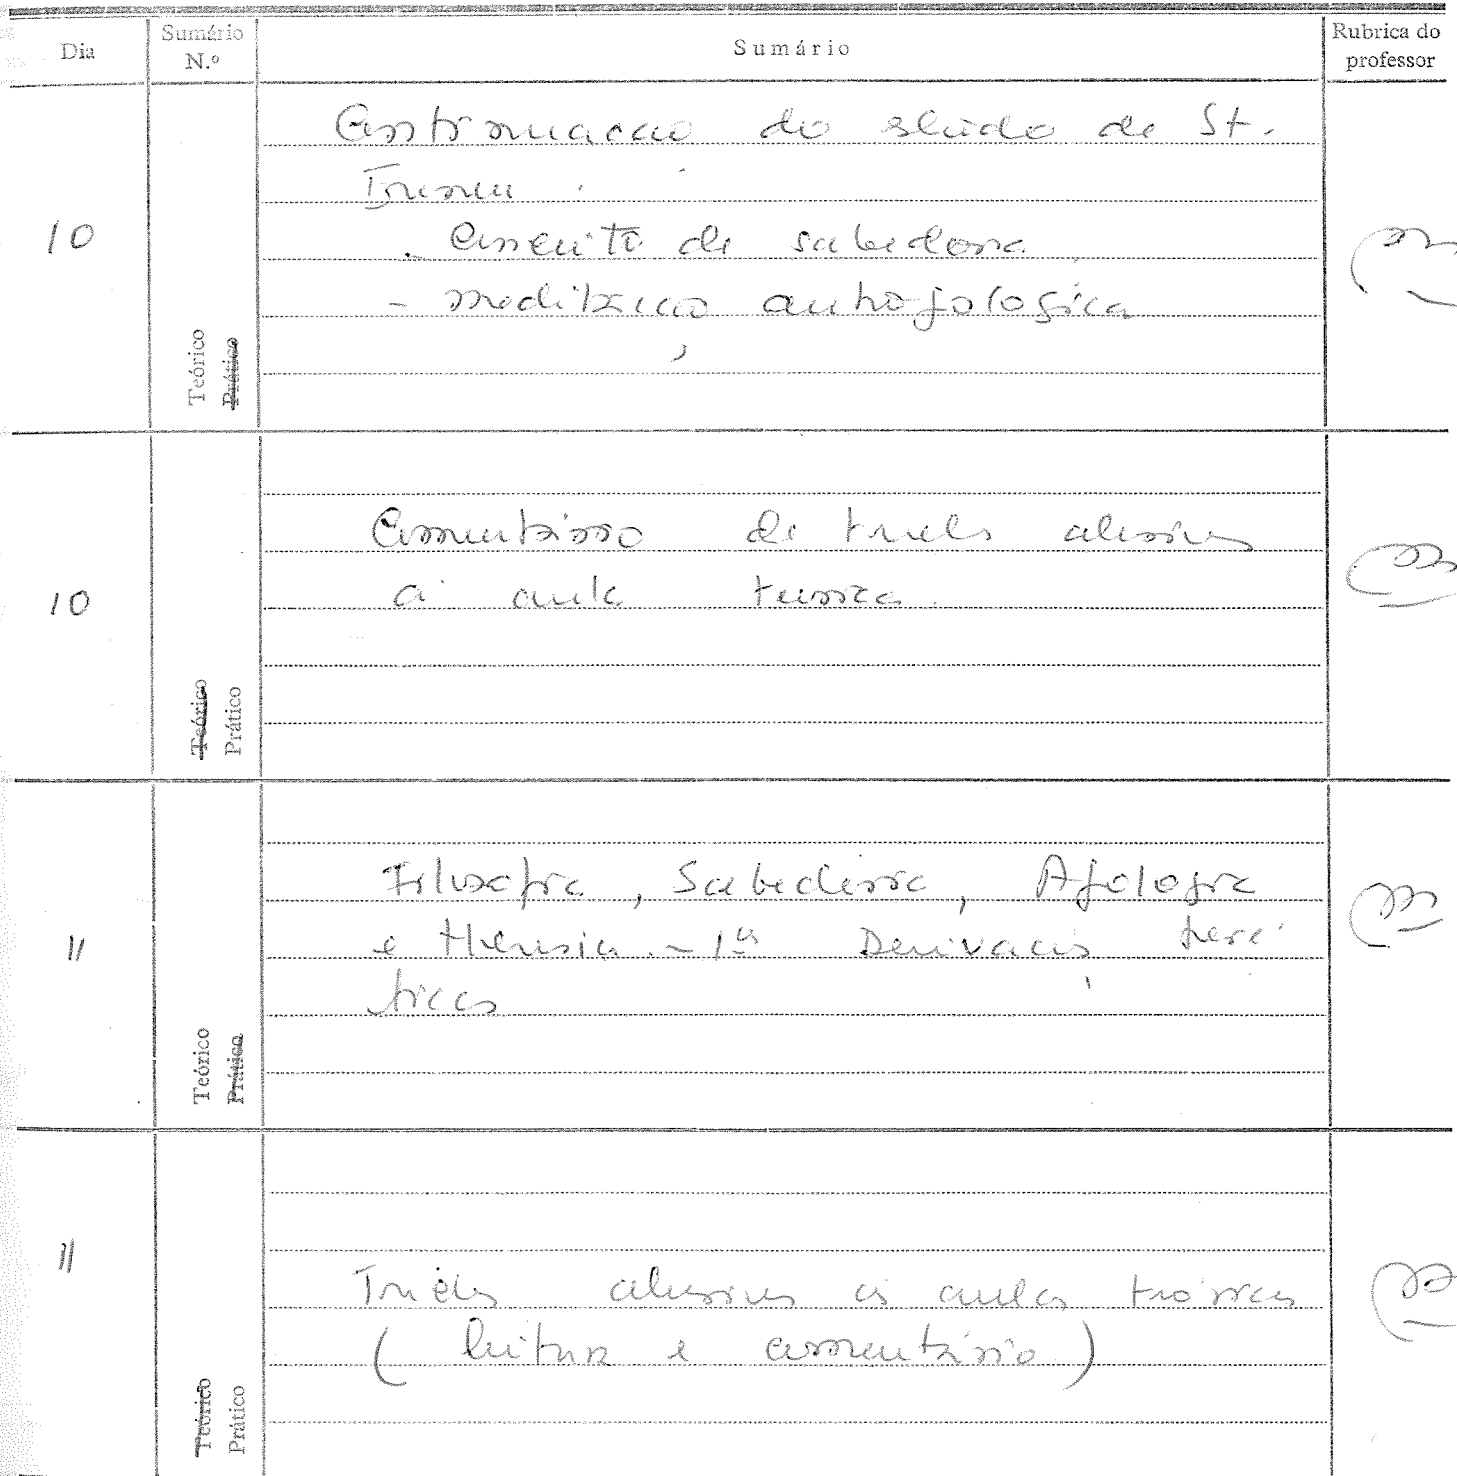 Dia
Sumário
N.º
Sumário
Rubrica do
professor
10
Teórico
Prático
Continuação do estudo de St.
Ireneu
. Conceito de sabedoria
- meditação antropológica
10
Teórico
Prático
Comentário de trechos alusivos
à aula teórica.
11
Teórico
Prático
Filosofia, Sabedoria, Apologia
e Heresia. - 1ªs Derivações heré
ticas
11
Teórico
Prático
Trechos alusivos às aulas teóricas
(leitura e comentário)